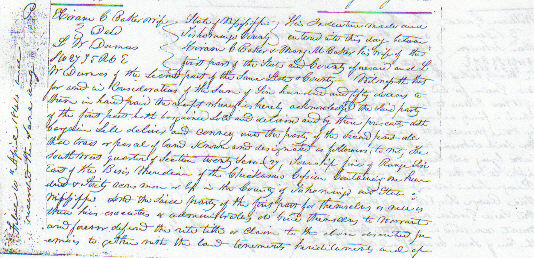 Hiram C Baker & wife
To Deed
S W Durnes
Sec 27 T 5 R 6 E
State of Mississippi
Tishomingo County
This Indenture made and
entered into this day between
Hiram C Baker & Mary M Baker his wife of the
first part of the State and County aforesaid and S
W Durnes of the second part of the same State & County Witnesseth that
for and in consideration of the Sum of Six hundred and fifty dollars to
them in hand paid the receipt whereof is hereby acknowledged the said party
of the first part hath bargained Sold and delivered and by these presents doth
bargain Sell deliver and convey unto the party of the Second part all
that tract or parcel of land Known and designated as follows, to wit, The
South West quarter of Section twenty Seven 27, Township five 5 Range Six
East of the Basis Meridian of the Chickasaw Cession Containing one hun
dred & Sixty acres more or less in the County of Tishomingo and State of
Mississippi and the Said party of the first part for themselves
their heirs executors & administrators
and forever defend the title or claim to the above described
together with the land tenements hereditaments and
Filed
April